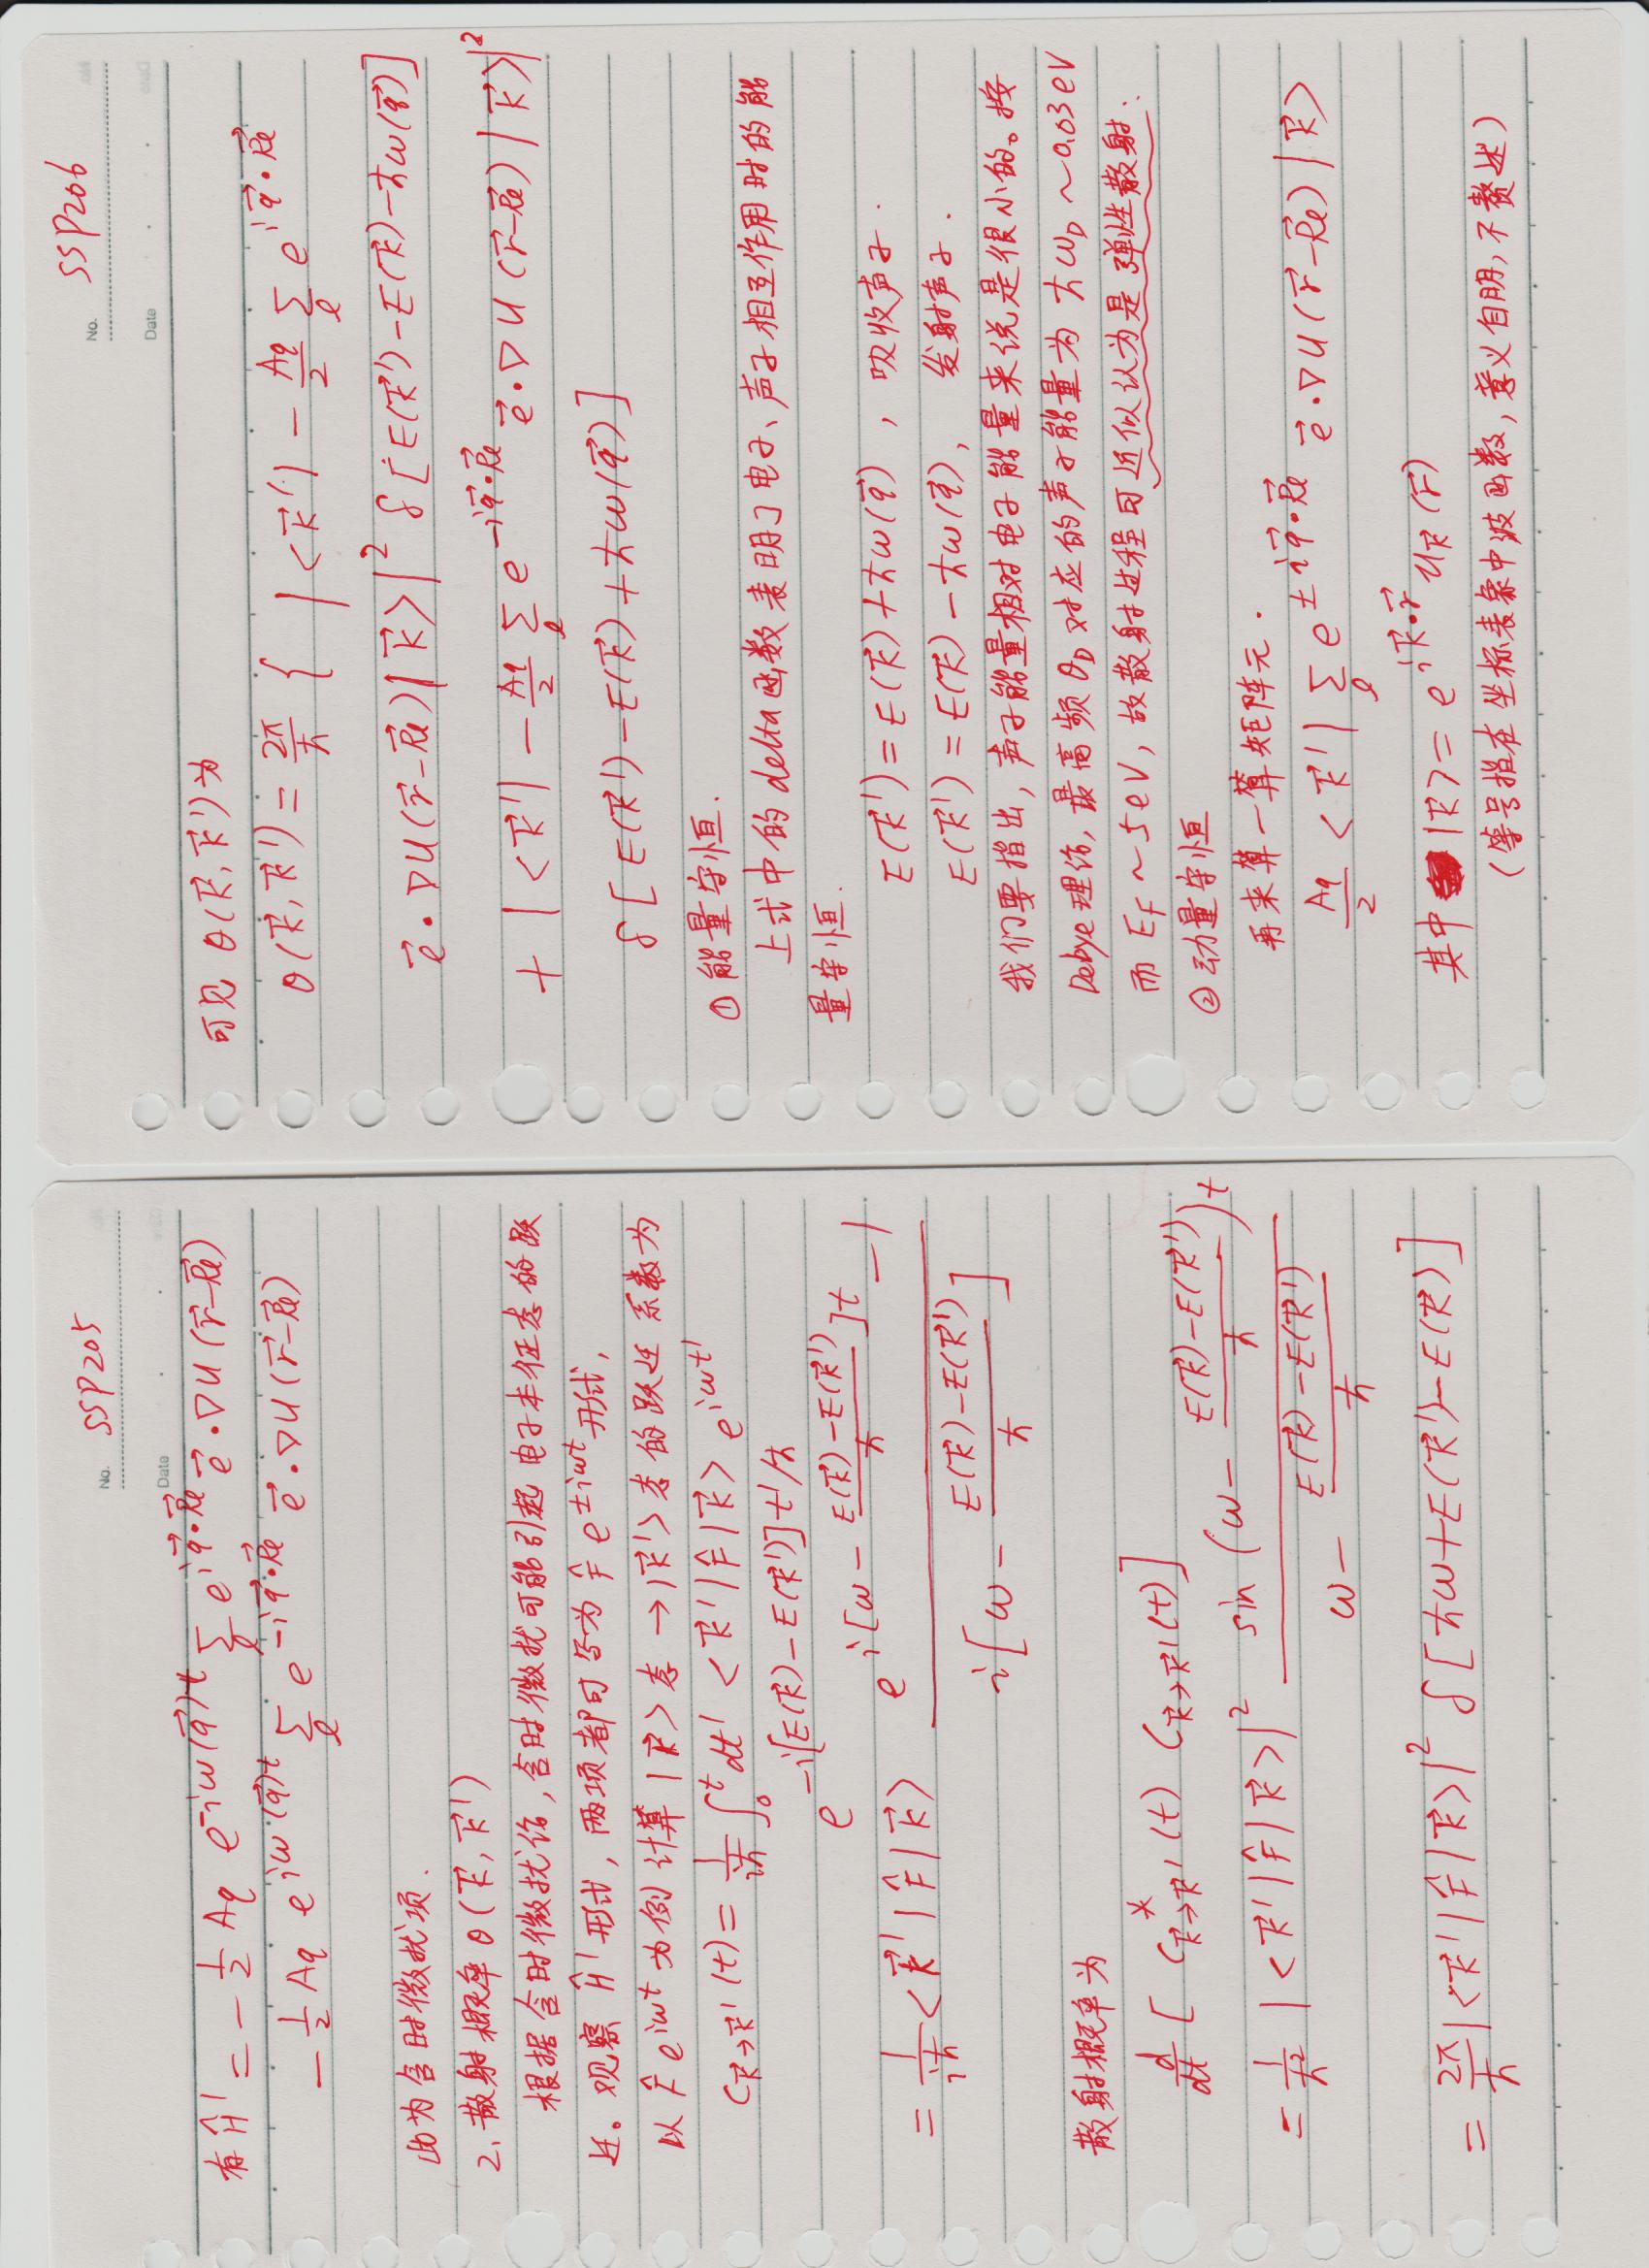 No. SSP205
Date
有 Ĥ' = -1/2 Aq e^{-iω(q⃗)t} Σ_l e^{iq⃗·R⃗l} e⃗·∇U(r⃗-R⃗l)
-1/2 Aq e^{iω(q⃗)t} Σ_l e^{-iq⃗·R⃗l} e⃗·∇U(r⃗-R⃗l)
此为含时微扰项.
2. 散射概率 θ(k⃗, k⃗')
根据含时微扰论, 含时微扰可能引起电子本征态的跃
迁。观察 Ĥ' 形式, 两项都可写为 F̂ e^{±iωt} 形式,
以 F̂ e^{iωt} 为例 计算 |k⃗> 态 → |k⃗'> 态的跃迁系数为
C_{k⃗→k⃗'}(t) = 1/(iħ) ∫_0^t dt' <k⃗'|F̂|k⃗> e^{iωt'}
e^{-i[E(k⃗)-E(k⃗')]t'/ħ}
= 1/(iħ) <k⃗'|F̂|k⃗> (e^{i[ω - (E(k⃗)-E(k⃗'))/ħ]t} - 1) / (i[ω - (E(k⃗)-E(k⃗'))/ħ])
散射概率为
d/dt [C*_{k⃗→k⃗'}(t) C_{k⃗→k⃗'}(t)]
= 1/ħ² |<k⃗'|F̂|k⃗>|² sin(ω - (E(k⃗)-E(k⃗'))/ħ)t / (ω - (E(k⃗)-E(k⃗'))/ħ)
= 2π/ħ |<k⃗'|F̂|k⃗>|² δ[ħω+E(k⃗')-E(k⃗)]
No. SSP206
Date
可见 θ(k⃗, k⃗') 为
θ(k⃗, k⃗') = 2π/ħ { |<k⃗'| - Aq/2 Σ_l e^{iq⃗·R⃗l}
e⃗·∇U(r⃗-R⃗l)|k⃗>|² δ[E(k⃗')-E(k⃗)-ħω(q⃗)]
+ |<k⃗'| - Aq/2 Σ_l e^{-iq⃗·R⃗l} e⃗·∇U(r⃗-R⃗l)|k⃗>|²
δ[E(k⃗')-E(k⃗)+ħω(q⃗)]
① 能量守恒.
上式中的 delta 函数表明了电子、声子相互作用时的能
量守恒.
E(k⃗') = E(k⃗)+ħω(q⃗) , 吸收声子.
E(k⃗') = E(k⃗)-ħω(q⃗), 发射声子.
我们要指出, 声子能量相对电子能量来说是很小的。按
Debye 理论, 最高频 θD 对应的声子能量为 ħωD ~ 0.03eV
而 EF ~ 5eV, 故散射过程可近似认为是弹性散射.
② 动量守恒
再来算一算矩阵元.
Aq/2 <k⃗'| Σ_l e^{±iq⃗·R⃗l} e⃗·∇U(r⃗-R⃗l)|k⃗>
其中 |k⃗> = e^{ik⃗·r⃗} u_{k⃗}(r⃗)
(等号指在坐标表象中波函数, 意义自明, 不赘述)